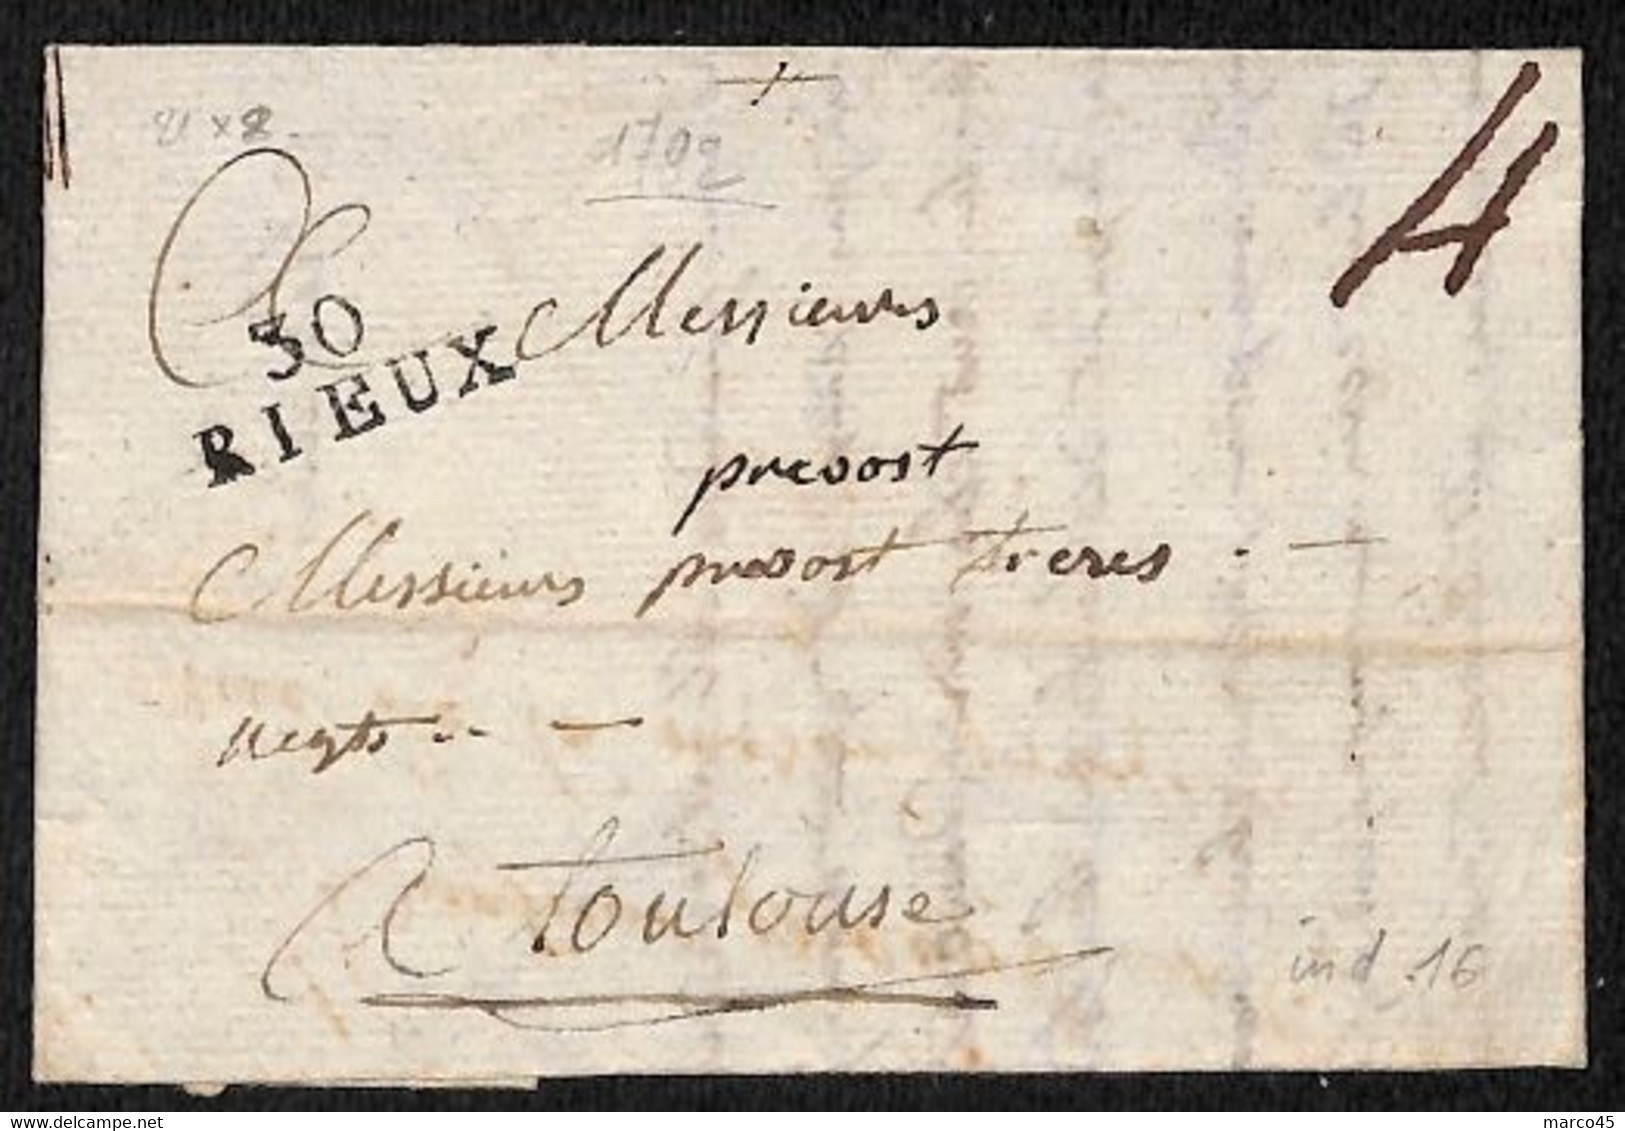 1792
4
30
RIEUX
Messieurs
prevost
Messieurs prevost freres . —
negts .. —
A toulouse
ind . 16
marco45